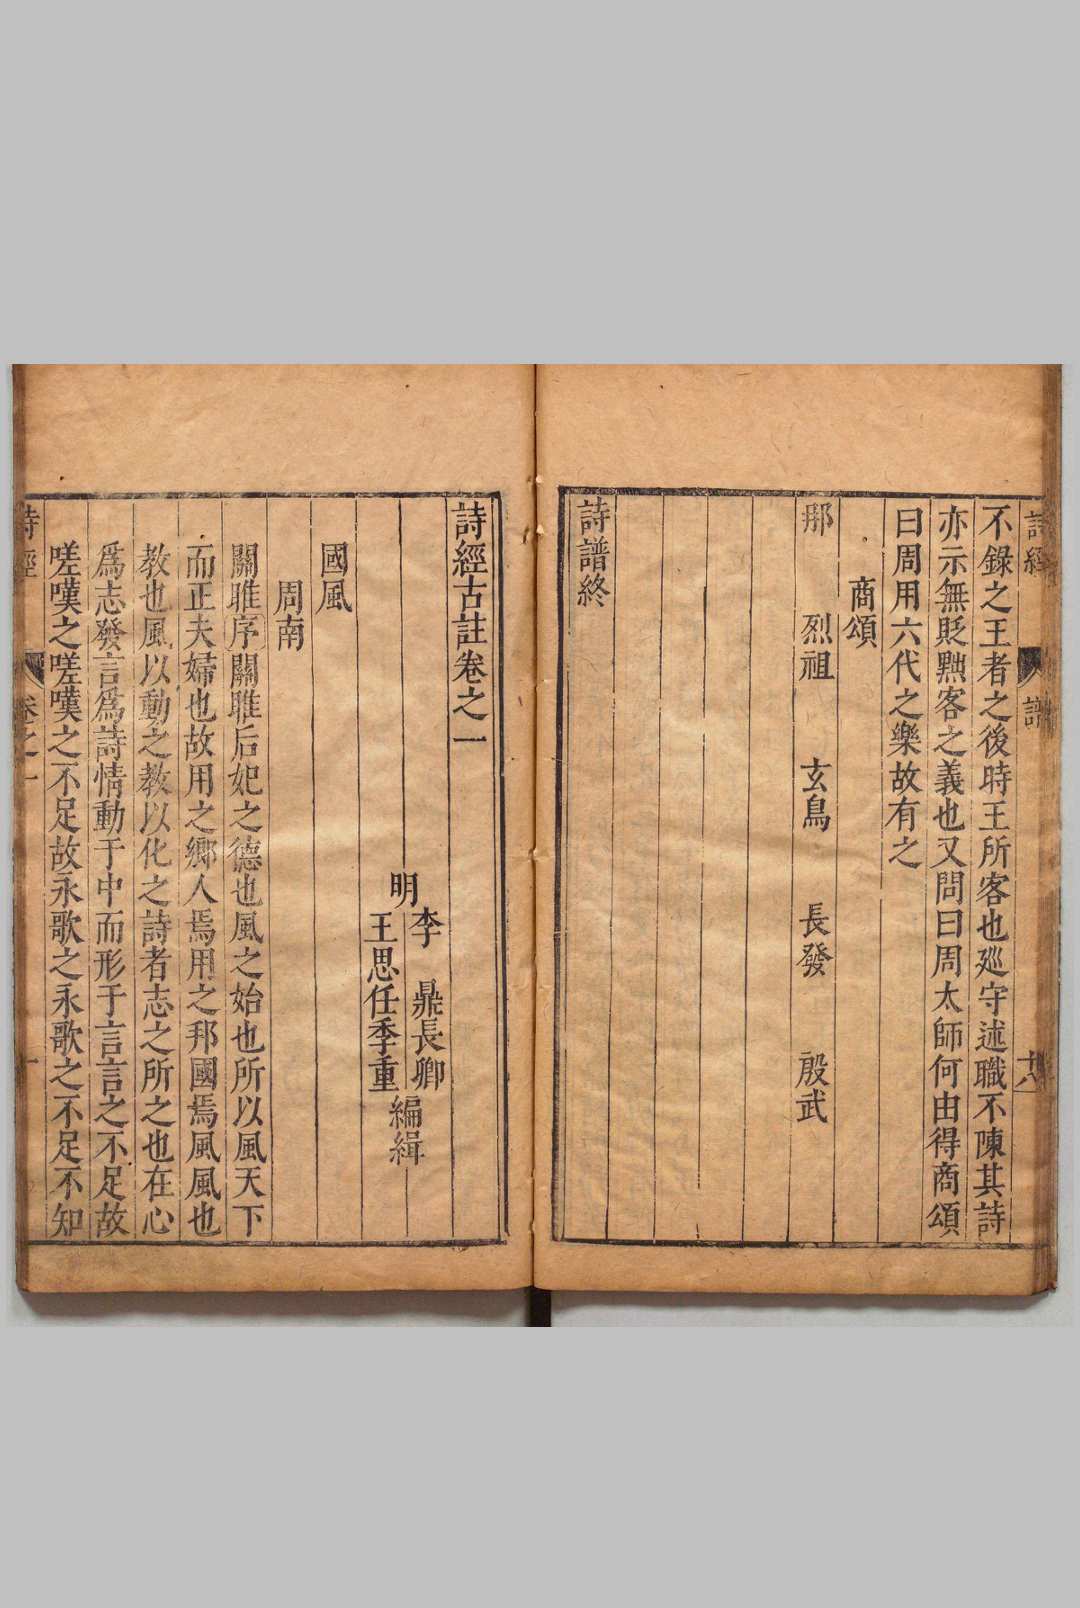 詩經 譜 十八
不錄之王者之後時王所客也廵守述職不陳其詩
亦示無貶黜客之義也又問曰周太師何由得商頌
曰周用六代之樂故有之
商頌
那 烈祖 玄鳥 長發 殷武
詩譜終
詩經古註卷之一
明 李鼎長卿
王思任季重 編緝
國風
周南
關雎序關雎后妃之德也風之始也所以風天下
而正夫婦也故用之鄉人焉用之邦國焉風風也
教也風以動之教以化之詩者志之所之也在心
爲志發言爲詩情動于中而形于言言之不足故
嗟嘆之嗟嘆之不足故永歌之永歌之不足不知
詩經 卷之一 一